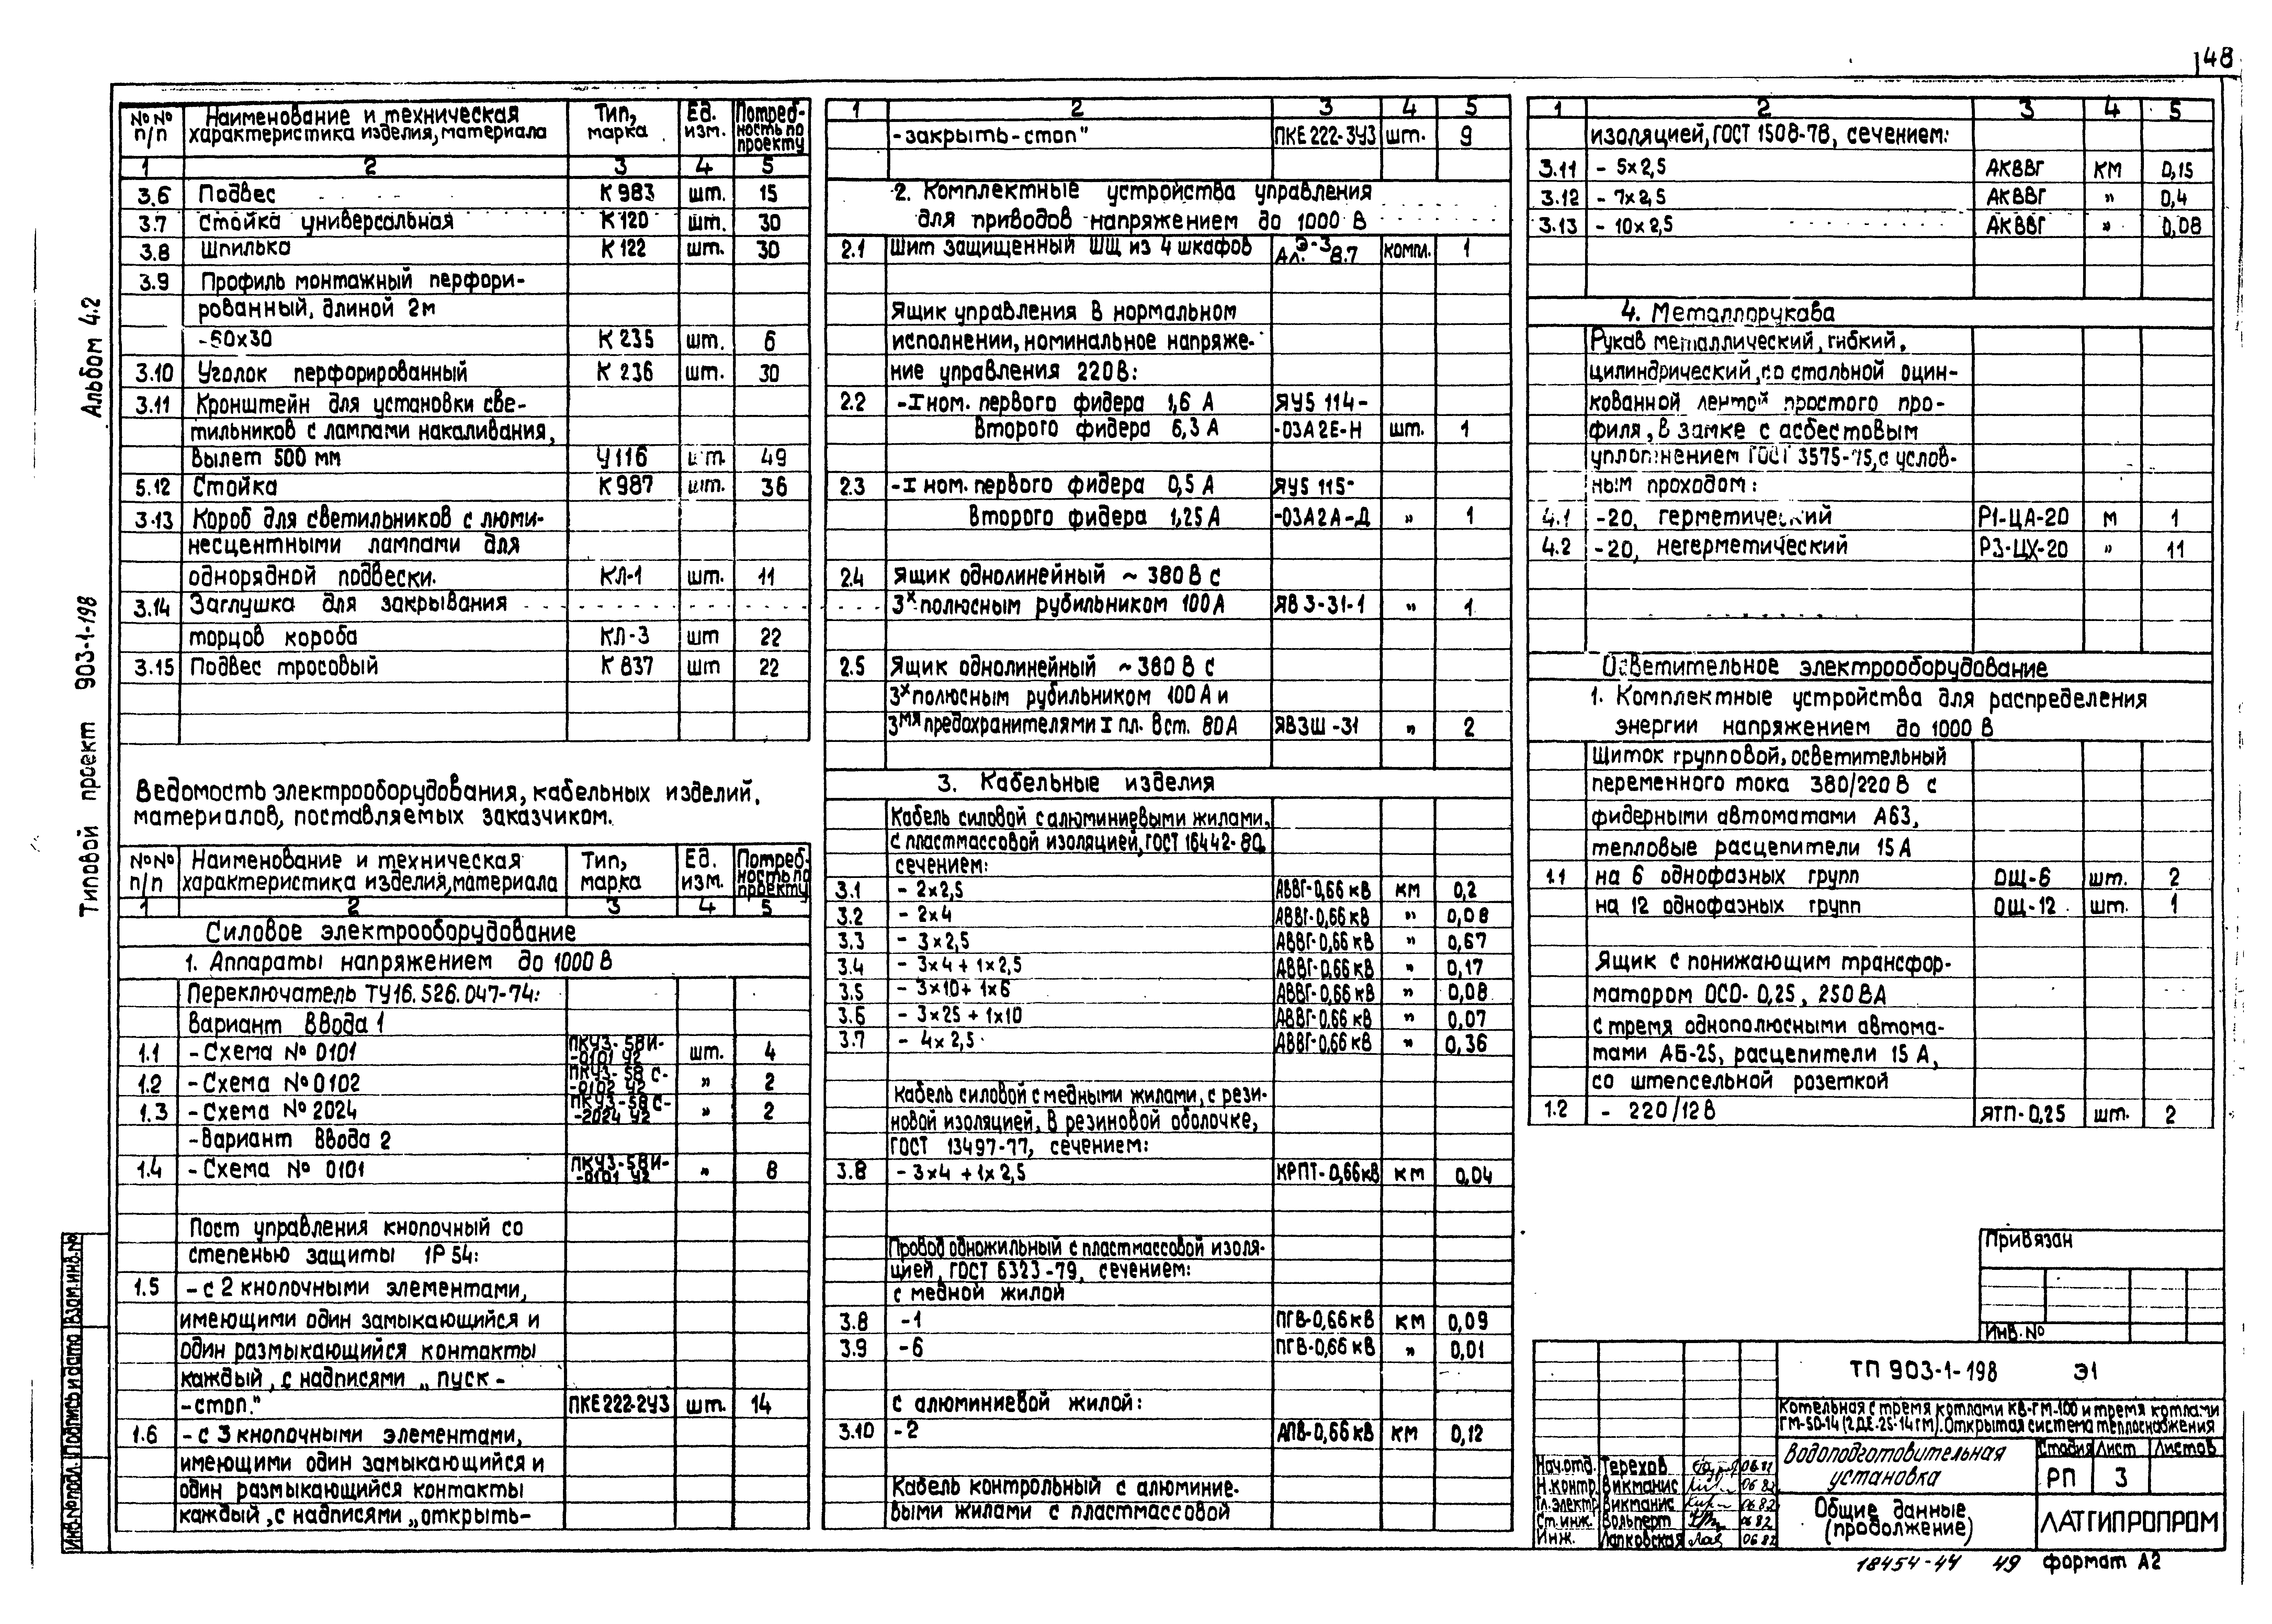 148
Альбом 4.2
Типовой проект 903-1-198
Инв.№ подл. Подпись и дата Взам.инв.№
№№ п/п Наименование и техническая характеристика изделия, материала Тип, марка Ед. изм. Потреб-ность по проекту
1 2 3 4 5
3.6 Подвес К 983 шт. 15
3.7 Стойка универсальная К 120 шт. 30
3.8 Шпилька К 122 шт. 30
3.9 Профиль монтажный перфори-
рованный, длиной 2м
-60х30 К 235 шт. 6
3.10 Уголок перфорированный К 236 шт. 30
3.11 Кронштейн для установки све-
тильников с лампами накаливания,
вылет 500 мм У116 шт. 49
5.12 Стойка К 987 шт. 36
3.13 Короб для светильников с люми-
несцентными лампами для
однорядной подвески. КЛ-1 шт. 11
3.14 Заглушка для закрывания
торцов короба КЛ-3 шт 22
3.15 Подвес тросовый К 837 шт 22
Ведомость электрооборудования, кабельных изделий,
материалов, поставляемых заказчиком.
№№ п/п Наименование и техническая характеристика изделия, материала Тип, марка Ед. изм. Потреб-ность по проекту
1 2 3 4 5
Силовое электрооборудование
1. Аппараты напряжением до 1000 В
Переключатель ТУ16.526.047-74:
Вариант ввода 1
1.1 -Схема № 0101 ПКУ3-58И-0101 У2 шт. 4
1.2 -Схема № 0102 ПКУ3-58С-0102 У2 " 2
1.3 -Схема № 2024 ПКУ3-58С-2024 У2 " 2
-Вариант ввода 2
1.4 -Схема № 0101 ПКУ3-58И-0101 У2 " 8
Пост управления кнопочный со
степенью защиты 1Р54:
1.5 -с 2 кнопочными элементами,
имеющими один замыкающийся и
один размыкающийся контакты
каждый, с надписями „пуск-
-стоп." ПКЕ222-2У3 шт. 14
1.6 -с 3 кнопочными элементами,
имеющими один замыкающийся и
один размыкающийся контакты
каждый, с надписями „открыть-
1 2 3 4 5
-закрыть-стоп" ПКЕ 222-3У3 шт. 9
2. Комплектные устройства управления
для приводов напряжением до 1000 В
2.1 Щит защищенный ШЩ из 4 шкафов Э-3 Ал. 8.7 компл. 1
Ящик управления в нормальном
исполнении, номинальное напряже-
ние управления 220В:
2.2 -Iном. первого фидера 1,6 А ЯУ5 114-
второго фидера 6,3 А -03А2Е-Н шт. 1
2.3 -I ном. первого фидера 0,5 А ЯУ5 115-
второго фидера 1,25 А -03А2А-Д " 1
2.4 Ящик однолинейный ~ 380 В с
3х полюсным рубильником 100 А ЯВ 3-31-1 " 1
2.5 Ящик однолинейный ~380 В с
3х полюсным рубильником 100 А и
3мя предохранителями I пл. вст. 80 А ЯВЗШ-31 " 2
3. Кабельные изделия
Кабель силовой с алюминиевыми жилами,
с пластмассовой изоляцией, ГОСТ 16442-80
сечением:
3.1 - 2х2,5 АВВГ-0,66 кВ км 0,2
3.2 - 2х4 АВВГ-0,66 кВ " 0,08
3.3 - 3х2,5 АВВГ-0,66 кВ " 0,67
3.4 - 3х4 + 1х2,5 АВВГ-0,66 кВ " 0,17
3.5 - 3х10 + 1х6 АВВГ-0,66 кВ " 0,08
3.6 - 3х25 + 1х10 АВВГ-0,66 кВ " 0,07
3.7 - 4х2,5 АВВГ-0,66 кВ " 0,36
Кабель силовой с медными жилами, с рези-
новой изоляцией, в резиновой оболочке,
ГОСТ 13497-77, сечением:
3.8 - 3х4 + 1х2,5 КРПТ-0,66кВ км 0,04
Провод одножильный с пластмассовой изоля-
цией, ГОСТ 6323-79, сечением:
с медной жилой
3.8 -1 ПГВ-0,66 кВ км 0,09
3.9 -6 ПГВ-0,66 кВ " 0,01
с алюминиевой жилой:
3.10 -2 АПВ-0,66 кВ км 0,12
Кабель контрольный с алюминие-
выми жилами с пластмассовой
1 2 3 4 5
изоляцией, ГОСТ 1508-78, сечением:
3.11 - 5х2,5 АКВВГ км 0,15
3.12 - 7х2,5 АКВВГ " 0,4
3.13 - 10х2,5 АКВВГ " 0,08
4. Металлорукава
Рукав металлический, гибкий,
цилиндрический, со стальной оцин-
кованной лентой простого про-
филя, в замке с асбестовым
уплотнением ГОСТ 3575-75, с услов-
ным проходом:
4.1 -20, герметический Р1-ЦА-20 м 1
4.2 -20, негерметический Р3-ЦХ-20 " 11
Осветительное электрооборудование
1. Комплектные устройства для распределения
энергии напряжением до 1000 В
Щиток групповой, осветительный
переменного тока 380/220 В с
фидерными автоматами А63,
тепловые расцепители 15 А
1.1 на 6 однофазных групп ОЩ-6 шт. 2
на 12 однофазных групп ОЩ-12 шт. 1
Ящик с понижающим трансфор-
матором ОСО-0,25, 250 ВА
с тремя однополюсными автома-
тами АБ-25, расцепители 15 А,
со штепсельной розеткой
1.2 - 220/12 В ЯТП-0,25 шт. 2
Привязан
Инв.№
ТП 903-1-198 Э1
Котельная с тремя котлами КВ-ГМ-100 и тремя котлами
ГМ-50-14 (2ДЕ-25-14ГМ). Открытая система теплоснабжения
Водоподготовительная установка
Стадия Лист Листов
РП 3
Общие данные (продолжение)
ЛАТГИПРОПРОМ
Нач.отд. Терехов 06.82
Н.контр. Викманис 06.82
Гл.электр. Викманис 06.82
Ст.инж. Вольперт 06.82
Инж. Лапковская 06.82
18454-44 49 формат А2